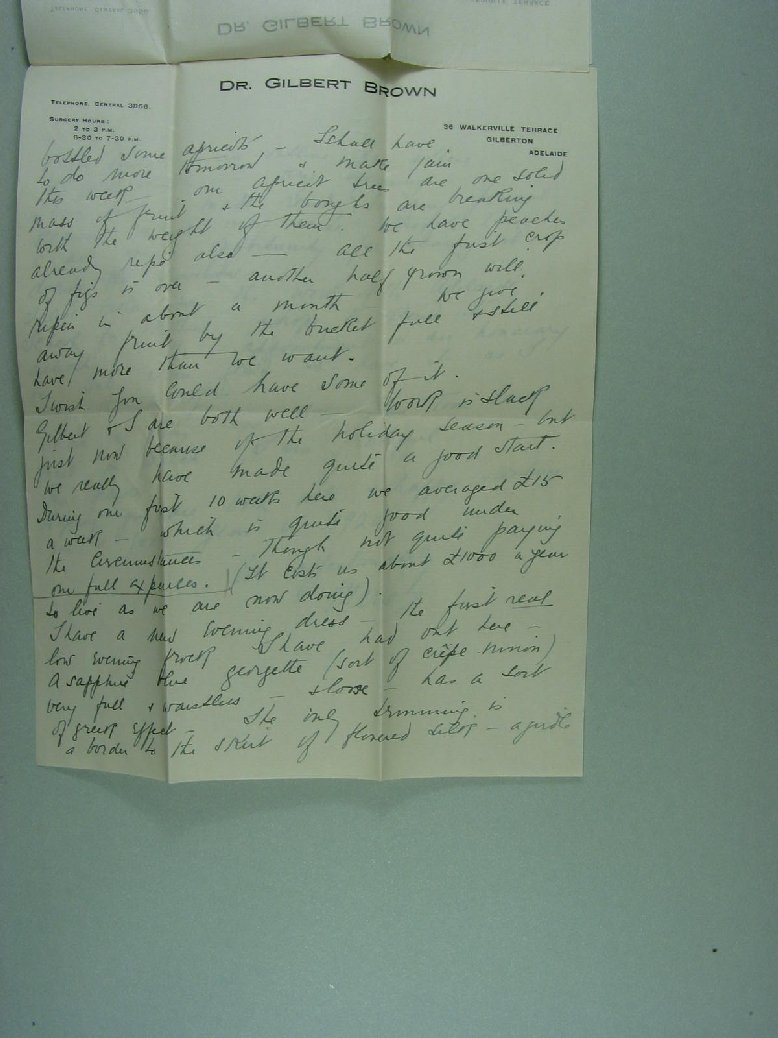 DR. GILBERT BROWN
DR. GILBERT BROWN
TELEPHONE GENERAL 3058.
SURGERY HOURS:
2 TO 3 P.M.
6-30 TO 7-30 P.M.
36 WALKERVILLE TERRACE
GILBERTON
ADELAIDE
bottled some apricots – I shall have
to do more tomorrow & make jam
this week – our apricot trees are one solid
mass of fruit & the boughs are breaking
with the weight of them. We have peaches
already ripe also – all the first crop
of figs is over – another half grown will
ripen in about a month We give
away fruit by the bucket full & still
have more than we want.
I wish you could have some of it.
Gilbert & I are both well – Work is slack
just now because of the holiday season – but
we really have made quite a good start.
During our first 10 weeks here we averaged £15
a week – which is quite good under
the circumstances – though not quite paying
our full expenses. (It costs us about £1000 a year
to live as we are now doing).
I have a new evening dress – the first real
low evening frock I have had out here –
A sapphire blue georgette (sort of crêpe ninon)
very full & waistless – & loose – has a sort
of greek effect – The only trimming is
a border to the skirt of flowered silk – a girdle